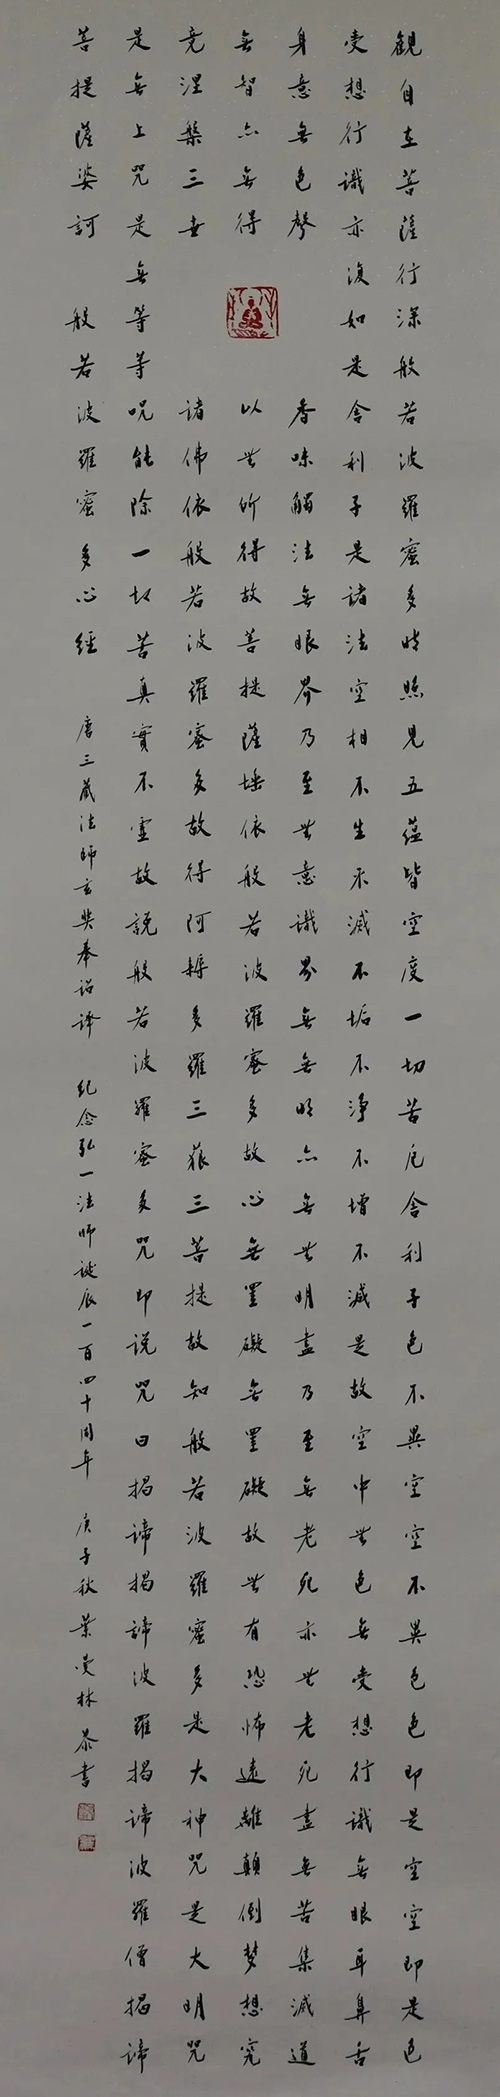 觀自在菩薩行深般若波羅蜜多時照見五蘊皆空度一切苦厄舍利子色不異空空不異色色即是空空即是色
受想行識亦復如是舍利子是諸法空相不生不滅不垢不淨不增不減是故空中無色無受想行識無眼耳鼻舌
身意無色聲香味觸法無眼界乃至無意識界無無明亦無無明盡乃至無老死亦無老死盡無苦集滅道
無智亦無得以無所得故菩提薩埵依般若波羅蜜多故心無罣礙無罣礙故無有恐怖遠離顛倒夢想究
竟涅槃三世諸佛依般若波羅蜜多故得阿耨多羅三藐三菩提故知般若波羅蜜多是大神咒是大明咒
是無上咒是無等等呪能除一切苦真實不虛故說般若波羅蜜多咒即說咒曰揭諦揭諦波羅揭諦波羅僧揭諦
菩提薩婆訶 般若波羅蜜多心經 唐三藏法師玄奘奉詔譯 紀念弘一法師誕辰一百四十周年 庚子秋 葉林恭書